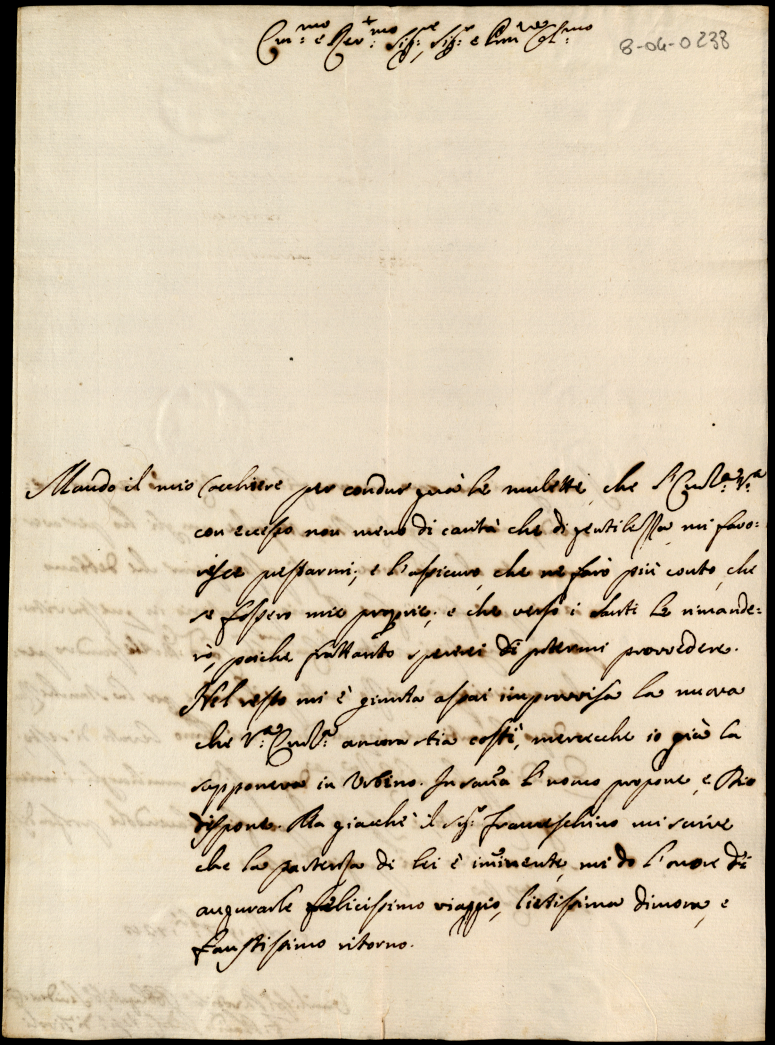 Em:mo e Rev:mo Sig:re, Sig:re e Pron:ne Col:mo
8-04-0238
Mando il mio Cocchiere per condur quà le mulette, che l'Em:za V:a
con eccesso non meno di carità che di gentilezza, mi favo:
risce prestarmi; e l'assicuro, che ne farò più conto, che
se fossero mie proprie; e che verso i Santi le rimande:
rò, poiche frattanto spererei di potermi provvedere.
Nel resto mi è giunta assai improvvisa la nuova
che V:a Em:za ancora stia costì, merecche io già la
supponeva in Urbino. In somma l'uomo propone, e Dio
dispone. Ma giacchè il Sig:r Franceschino mi scrive
che la partenza di lei è imminente, mi do l'onore di
augurarle felicissimo viaggio, lietissima dimora, e
faustissimo ritorno.